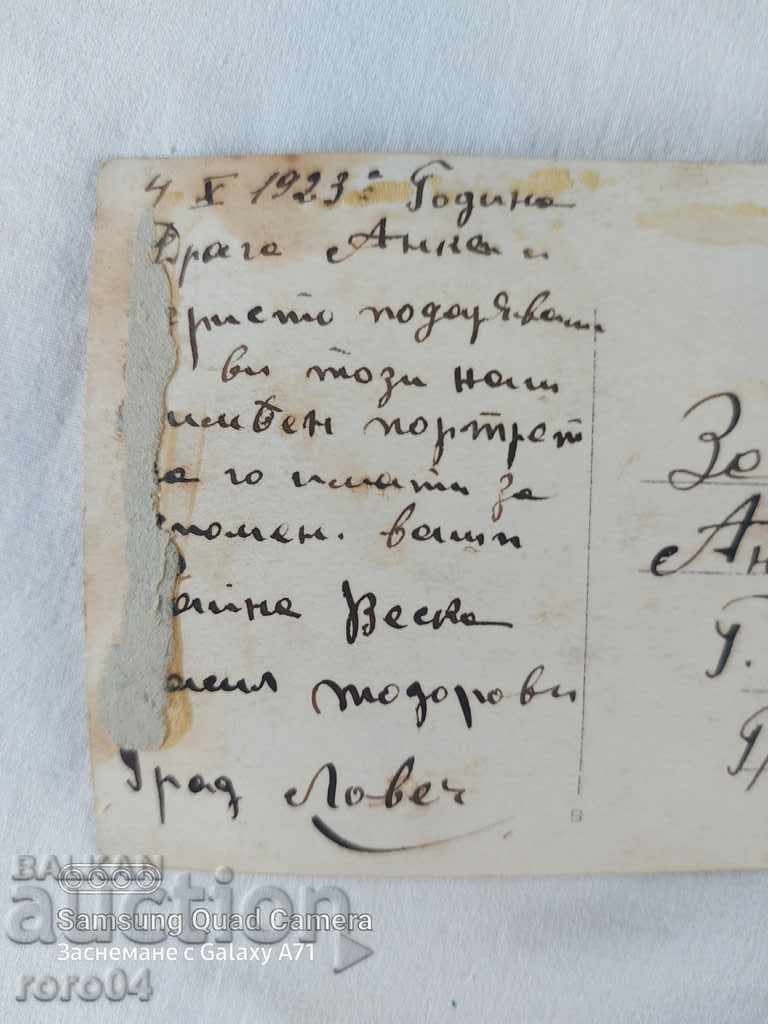 4 X 1923: Година
Драга Анка и
ристо подаряваме
ви този наш
имбен портрет
а го имати за
помен. ваши
айна Веска
асил тодорови
Град Ловеч
За
Ан
Г.
8
BALKAN
auction
Samsung Quad Camera
Заснемане с Galaxy A71
roro04